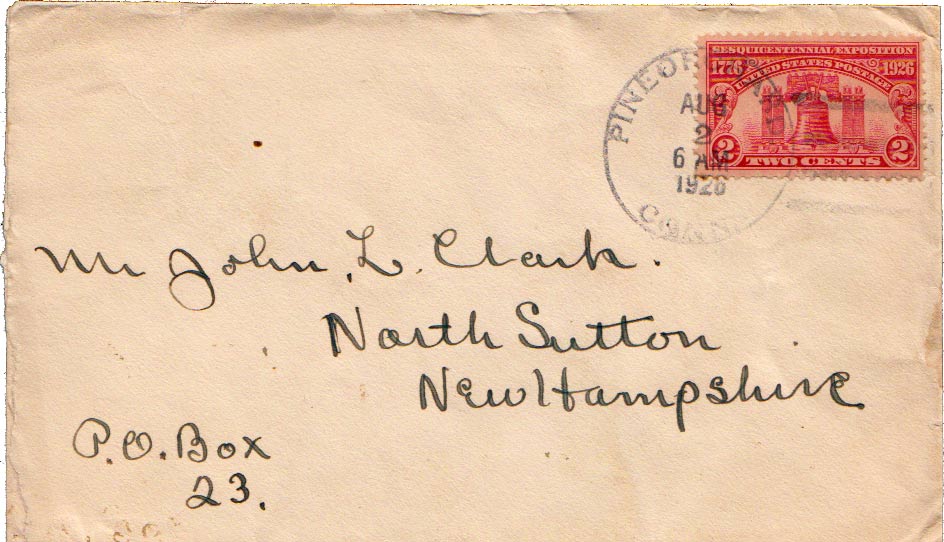 SESQUICENTENNIAL EXPOSITION
1776 UNITED STATES POSTAGE 1926
2 TWO CENTS 2
AUG
2
6 AM
1926
CONN.
Mr John L. Clark.
North Sutton
New Hampshire
P.O. Box
23.